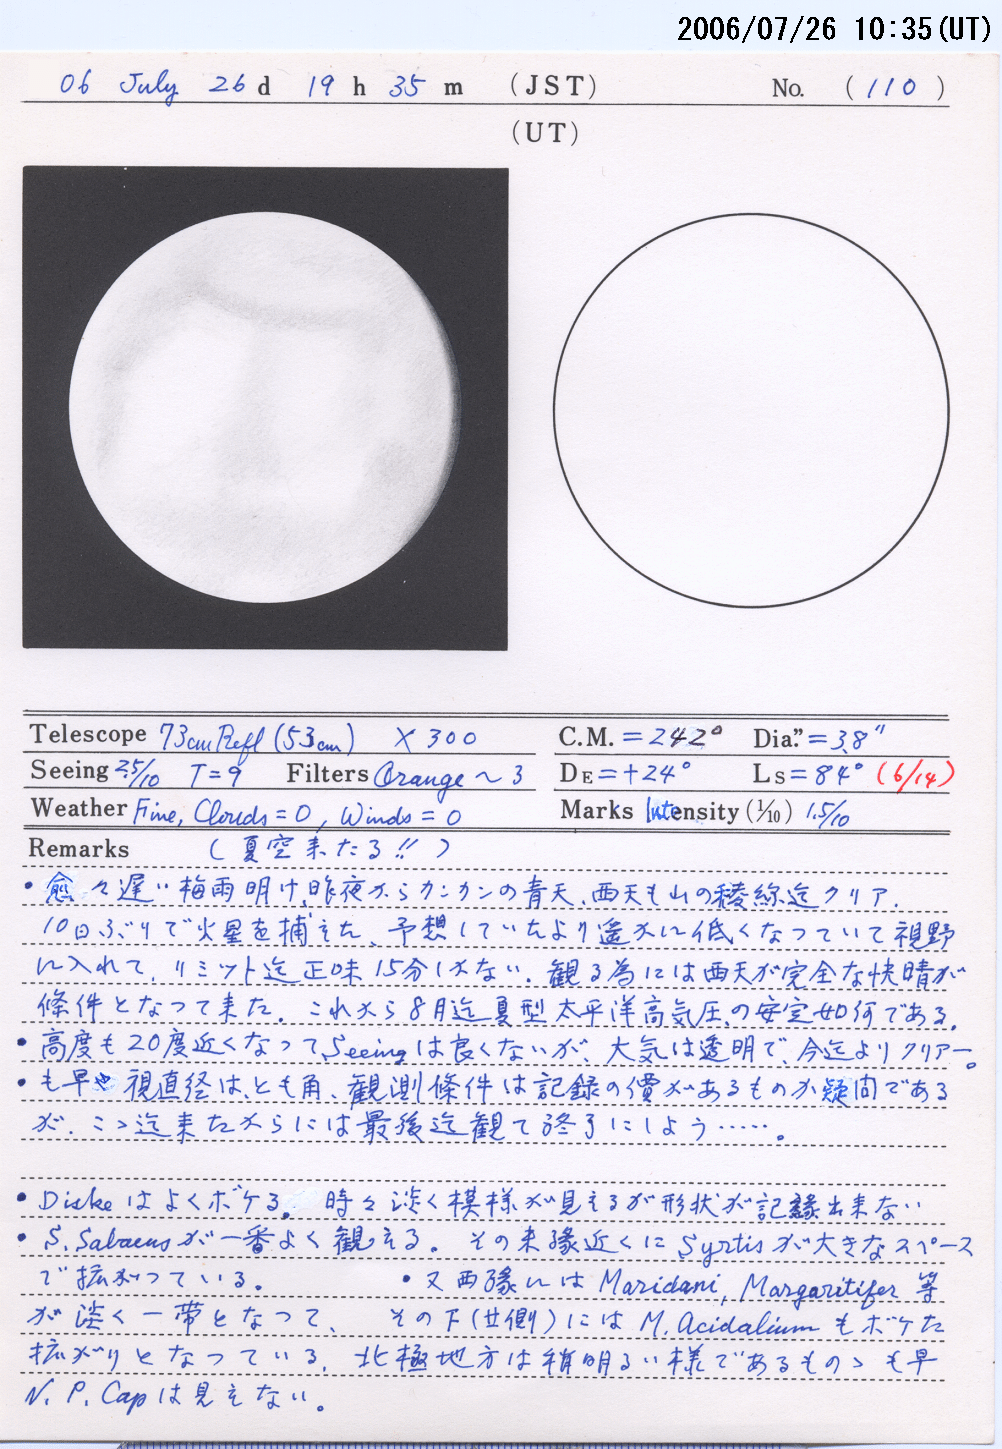 2006/07/26 10:35(UT)
06 July 26 d 19 h 35 m (JST) No. (110)
(UT)
Telescope 73cm Refl (53cm) × 300 C.M. = 242° Dia." = 3.8"
Seeing 2.5/10 T=9 Filters Orange ~ 3 DE = +24° Ls = 84° (6/14)
Weather Fine, Clouds = 0, Winds = 0 Marks Intensity (1/10) 1.5/10
Remarks (夏空来たる!!)
• 愈々遅い梅雨明け、昨夜からカンカンの青天、西天も山の稜線迄クリア.
10日ぶりで火星を捕えた、予想していたより遥かに低くなっていて視野
に入れて、リミット迄正味15分しかない. 観る為には西天が完全な快晴が
條件となって来た. これから8月迄夏型太平洋高気圧の安定如何である.
• 高度も20度近くなって、Seeingは良くないが、大気は透明で、今迄よりクリアー。
• も早や視直径は、とも角、観測條件は記録の價があるものか疑問である
が、ここ迄来たからには最後迄観て終了にしよう……。
• Diskeはよくボケる. 時々淡く模様が見えるが形状が記録出来ない
• S. Sabaeusが一番よく観える. その東縁近くにSyrtisが大きなスペース
で拡がっている. • 又西縁にはMaridani, Margaritifer等
が淡く一帯となって、 その下(北側)にはM. Acidaliumもボケた
拡がりとなっている. 北極地方は稍明るい様であるものゝも早
N. P. Capは見えない。